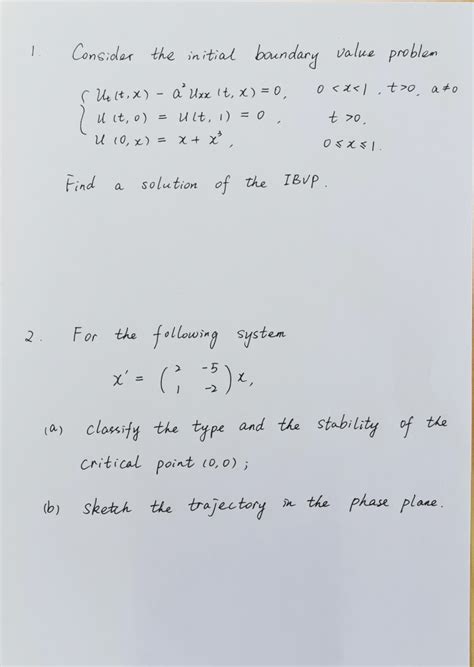 1. Consider the initial boundary value problem
{ U_t(t,x) - a² U_xx(t,x) = 0, 0<x<1, t>0, a≠0
U(t,0) = U(t,1) = 0, t>0,
U(0,x) = x + x³, 0≤x≤1.
Find a solution of the IBVP.
2. For the following system
x' = ( 2 -5
1 -2 ) x,
(a) classify the type and the stability of the
critical point (0,0);
(b) sketch the trajectory in the phase plane.